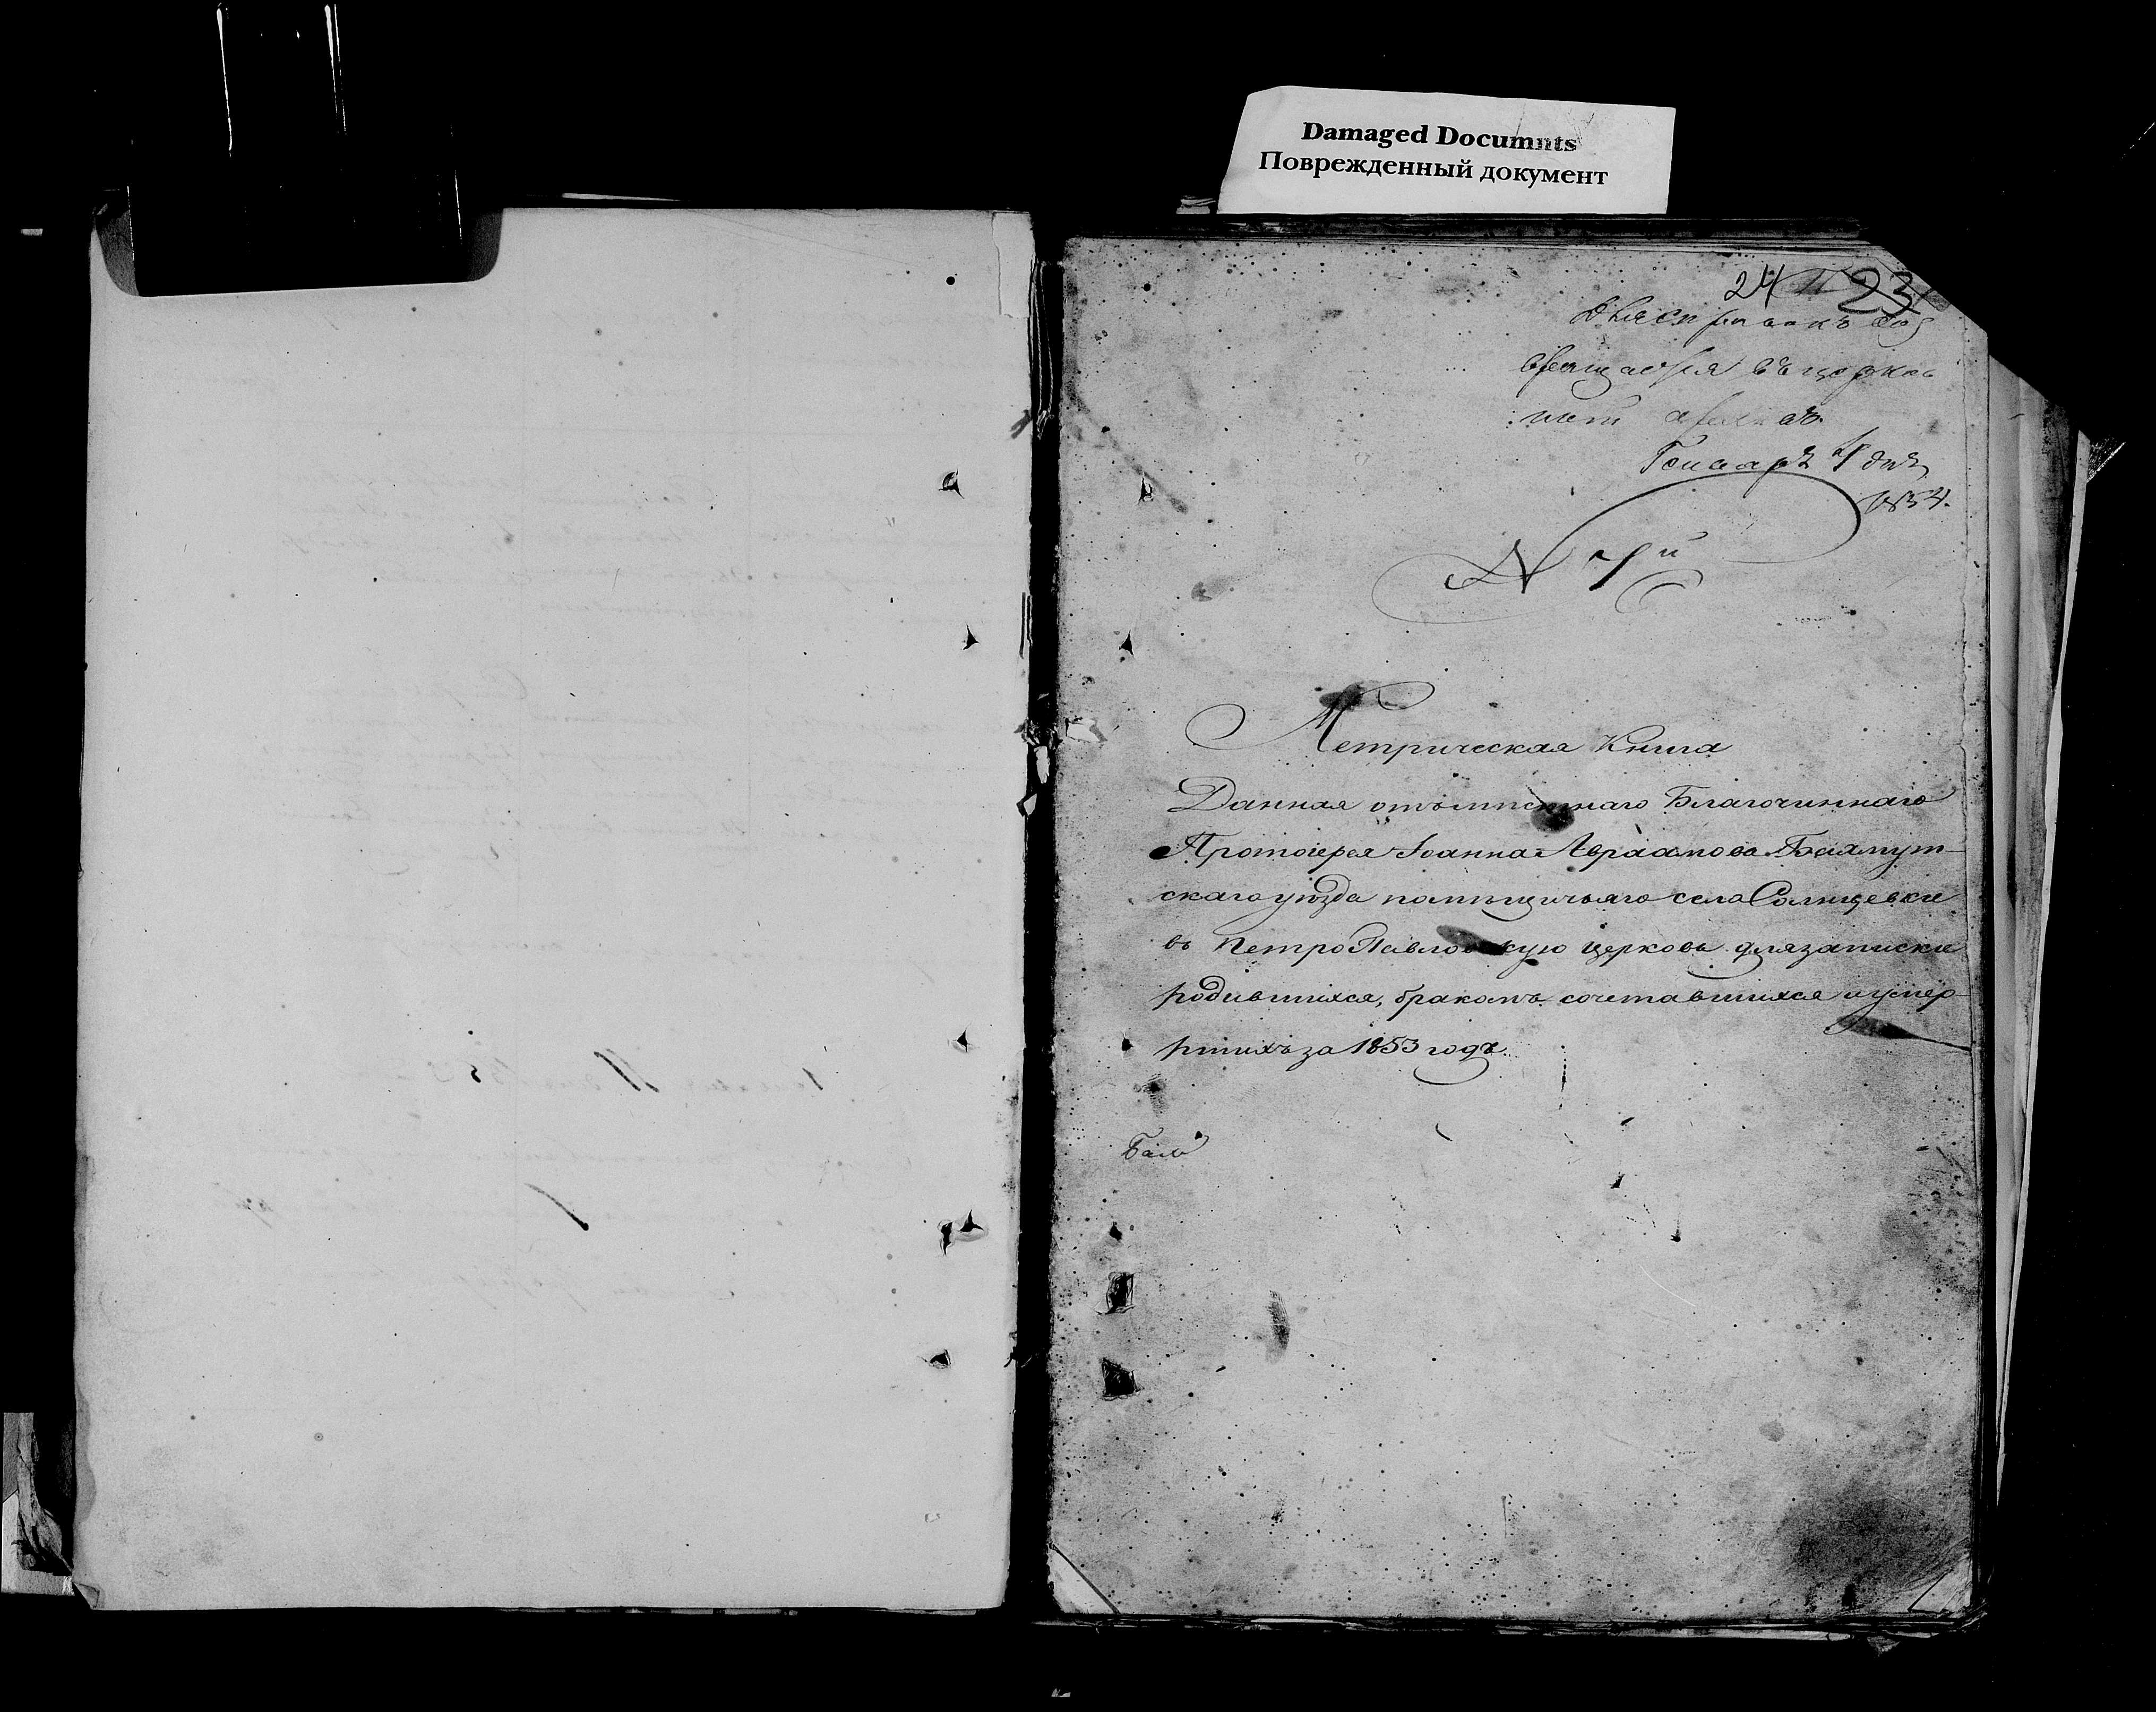 Damaged Documnts
Поврежденный документ
24 23
для справокъ воз
вращается въ церков
ный архивъ
Генваря 4 дня
1854.
N 4й
Метрическая Книга
Данная отъ местнаго Благочиннаго
Протоіерея Іоанна Авраамова Бахмут-
скаго уѣзда помѣщичьяго села Солнцевки
въ ПетроПавловскую церковь для записки
родившихся, бракомъ сочетавшихся и умер-
шихъ за 1853 годъ.